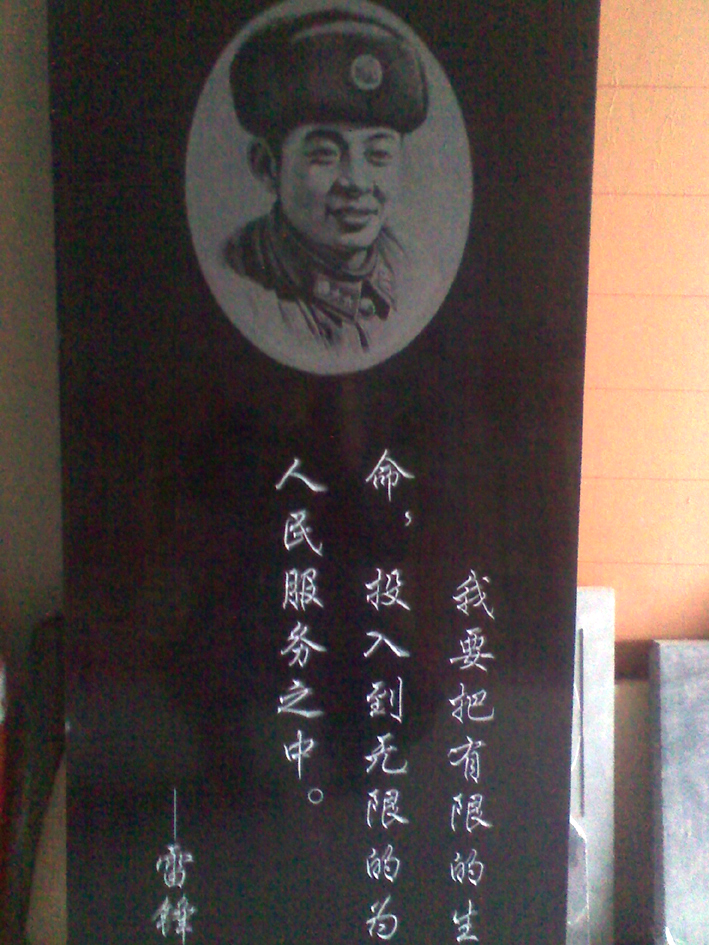 我要把有限的生
命，投入到无限的为
人民服务之中。
—雷锋